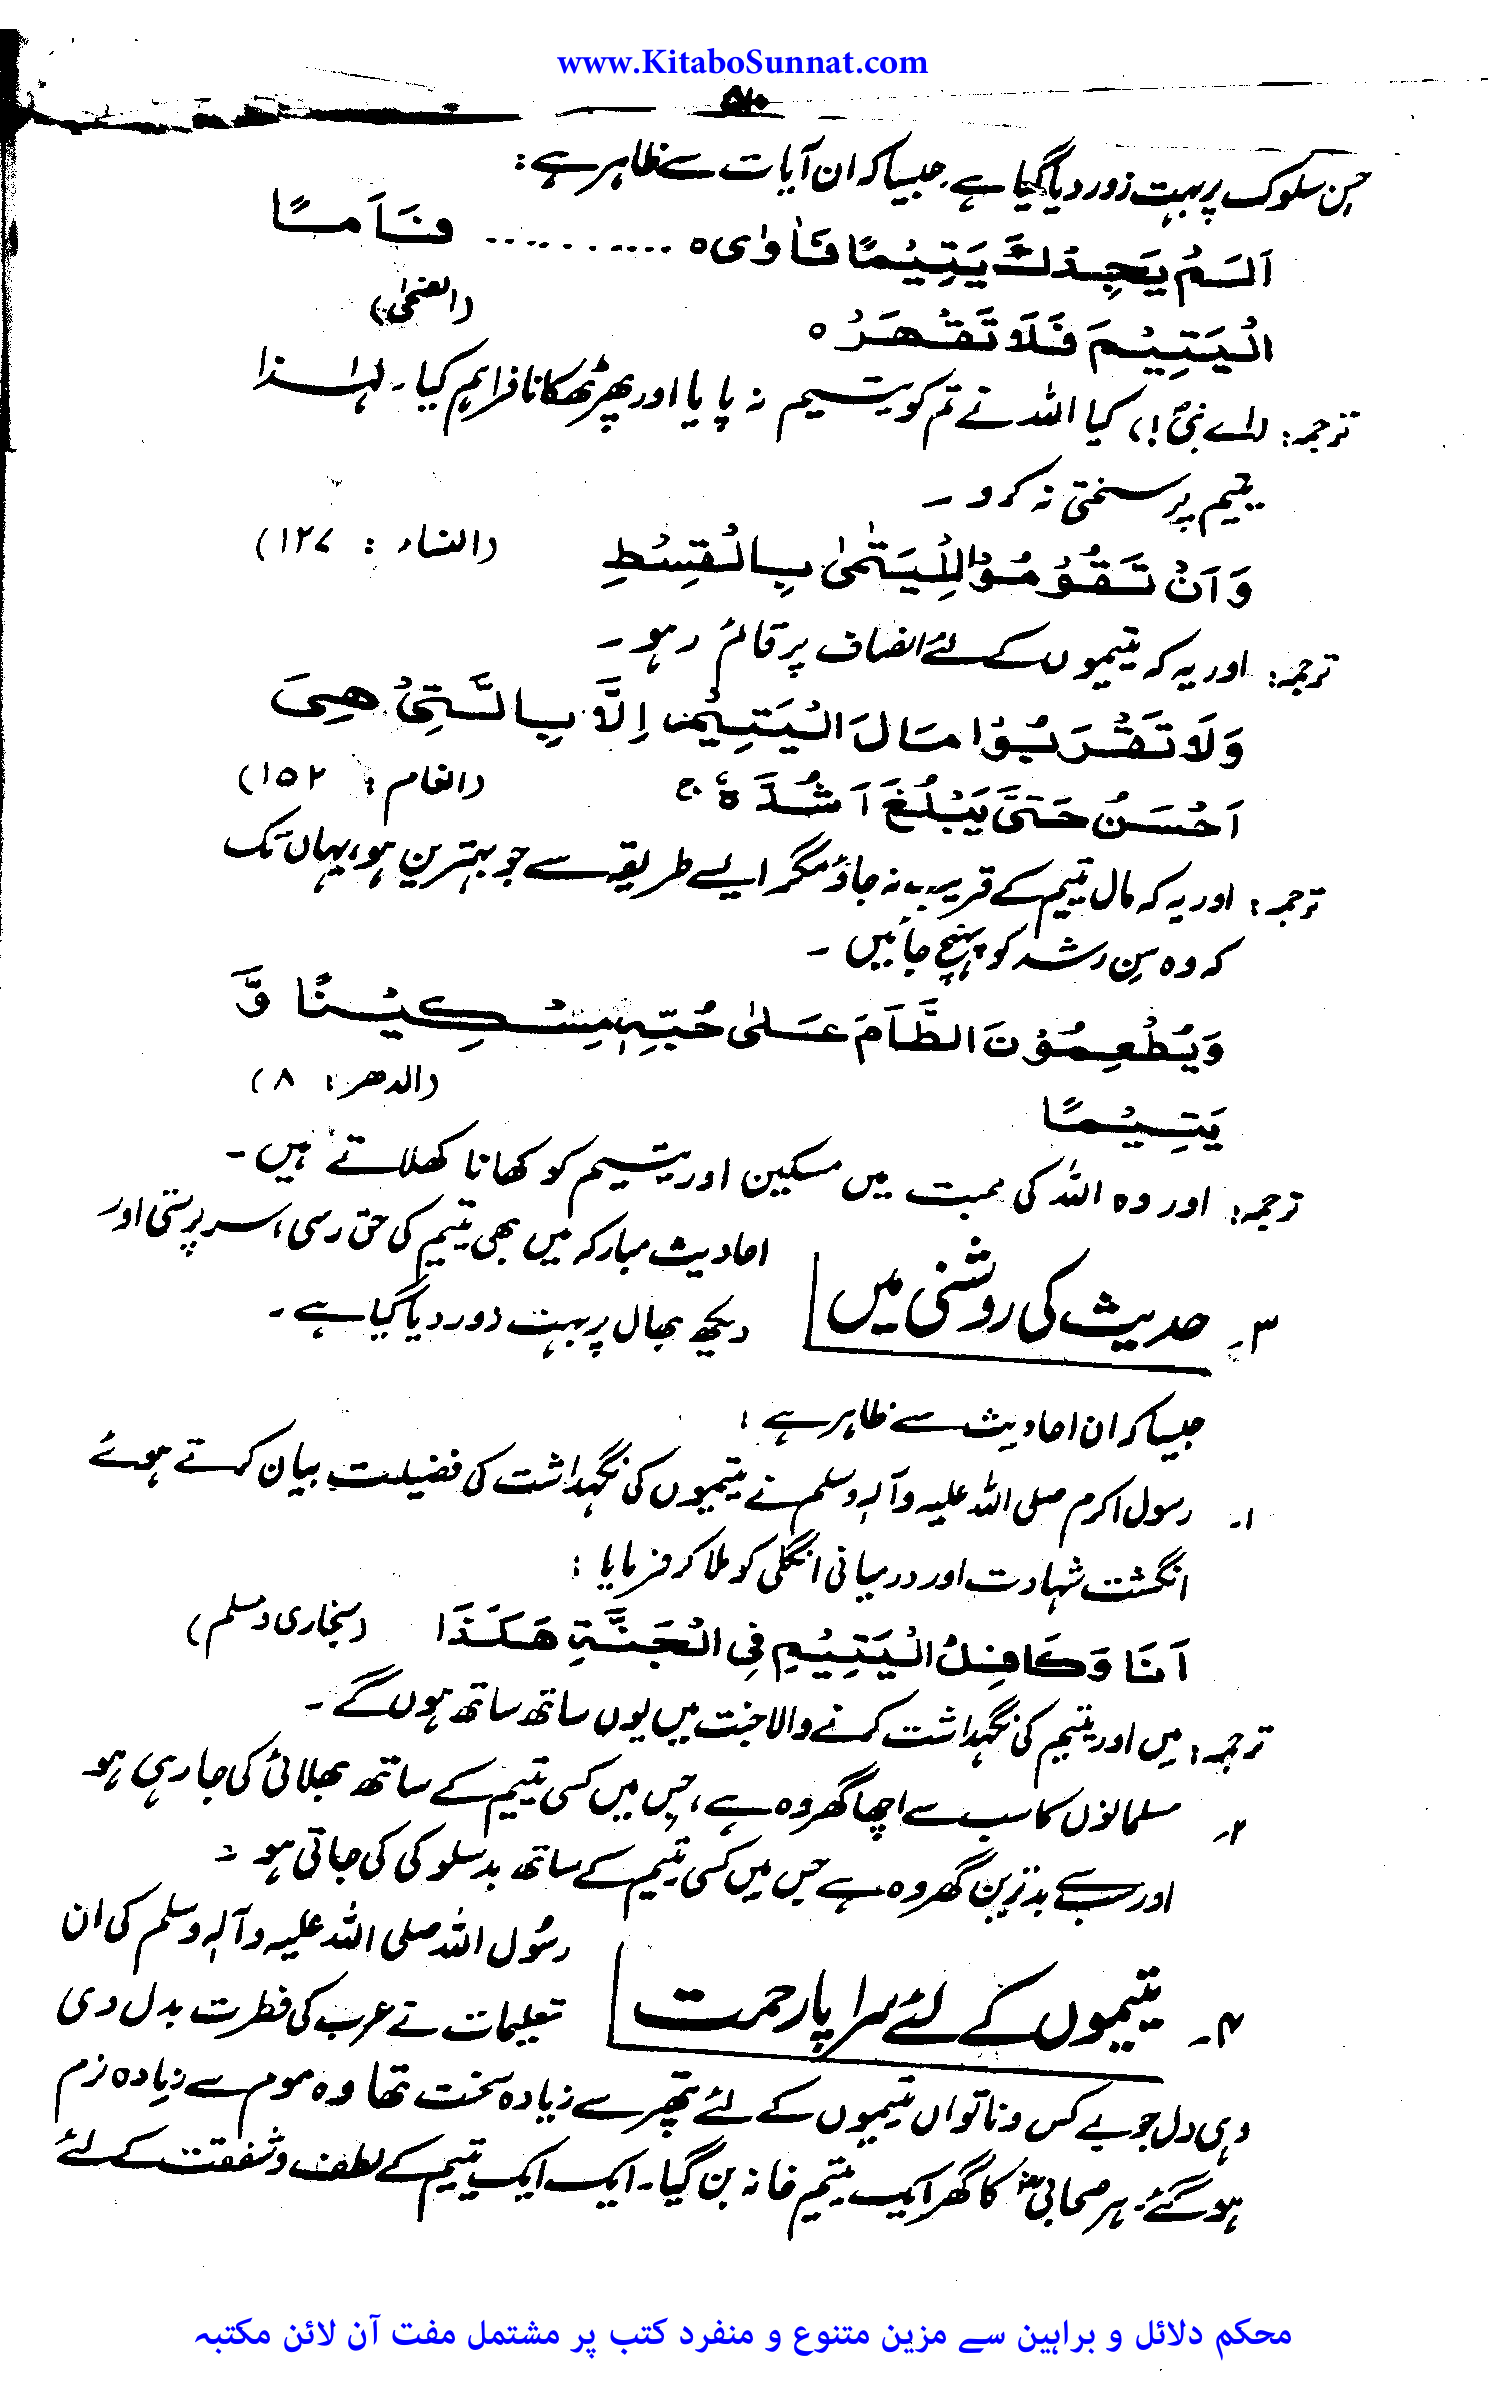 www.KitaboSunnat.com
۵۱۰
حسن سلوک پر بہت زور دیا گیا ہے۔ جیسا کہ ان آیات سے ظاہر ہے:
اَلَمْ يَجِدْكَ يَتِيْمًا فَاٰوٰى ۝ .......... فَاَمَّا
الْيَتِيْمَ فَلَا تَقْهَرْ ۝ (الضحیٰ)
ترجمہ: (اے نبیؐ!) کیا اللہ نے تم کو یتیم نہ پایا اور پھر ٹھکانا فراہم کیا۔ لہٰذا
یتیم پر سختی نہ کرو۔
وَاَنْ تَقُوْمُوْا لِلْيَتٰمٰى بِالْقِسْطِ (النساء: ۱۲۷)
ترجمہ: اور یہ کہ یتیموں کے لئے انصاف پر قائم رہو۔
وَلَا تَقْرَبُوْا مَالَ الْيَتِيْمِ اِلَّا بِالَّتِىْ هِىَ
اَحْسَنُ حَتّٰى يَبْلُغَ اَشُدَّهٗ ج (انعام: ۱۵۲)
ترجمہ: اور یہ کہ مال یتیم کے قریب نہ جاؤ مگر ایسے طریقہ سے جو بہترین ہو، یہاں تک
کہ وہ سِن رشد کو پہنچ جائیں۔
وَيُطْعِمُوْنَ الطَّاَمَ عَلٰى حُبِّهٖ مِسْكِيْنًا وَّ
يَتِيْمًا (الدھر: ۸)
ترجمہ: اور وہ اللہ کی محبت میں مسکین اور یتیم کو کھانا کھلاتے ہیں۔
۳۔ حدیث کی روشنی میں
احادیث مبارکہ میں بھی یتیم کی حق رسی، سرپرستی اور
دیکھ بھال پر بہت زور دیا گیا ہے۔
جیسا کہ ان احادیث سے ظاہر ہے:
۱۔ رسول اکرم صلی اللہ علیہ وآلہٖ وسلم نے یتیموں کی نگہداشت کی فضیلت بیان کرتے ہوئے
انگشت شہادت اور درمیانی انگلی کو ملا کر فرمایا:
اَنَا وَكَافِلُ الْيَتِيْمِ فِى الْجَنَّةِ هَكَذَا (بخاری ومسلم)
ترجمہ: میں اور یتیم کی نگہداشت کرنے والا جنت میں یوں ساتھ ساتھ ہوں گے۔
۲۔ مسلمانوں کا سب سے اچھا گھر وہ ہے، جس میں کسی یتیم کے ساتھ بھلائی کی جا رہی ہو
اور سب سے بدترین گھر وہ ہے جس میں کسی یتیم کے ساتھ بدسلوکی کی جاتی ہو۔
۴۔ یتیموں کے لئے سراپا رحمت
رسول اللہ صلی اللہ علیہ وآلہٖ وسلم کی ان
تعلیمات نے عرب کی فطرت بدل دی
وہی دل جو بے کس و ناتواں یتیموں کے لئے پتھر سے زیادہ سخت تھا وہ موم سے زیادہ نرم
ہو گئے۔ ہر صحابیؓ کا گھر ایک یتیم خانہ بن گیا۔ ایک ایک یتیم کے لطف و شفقت کے لئے
محکم دلائل و براہین سے مزین متنوع و منفرد کتب پر مشتمل مفت آن لائن مکتبہ